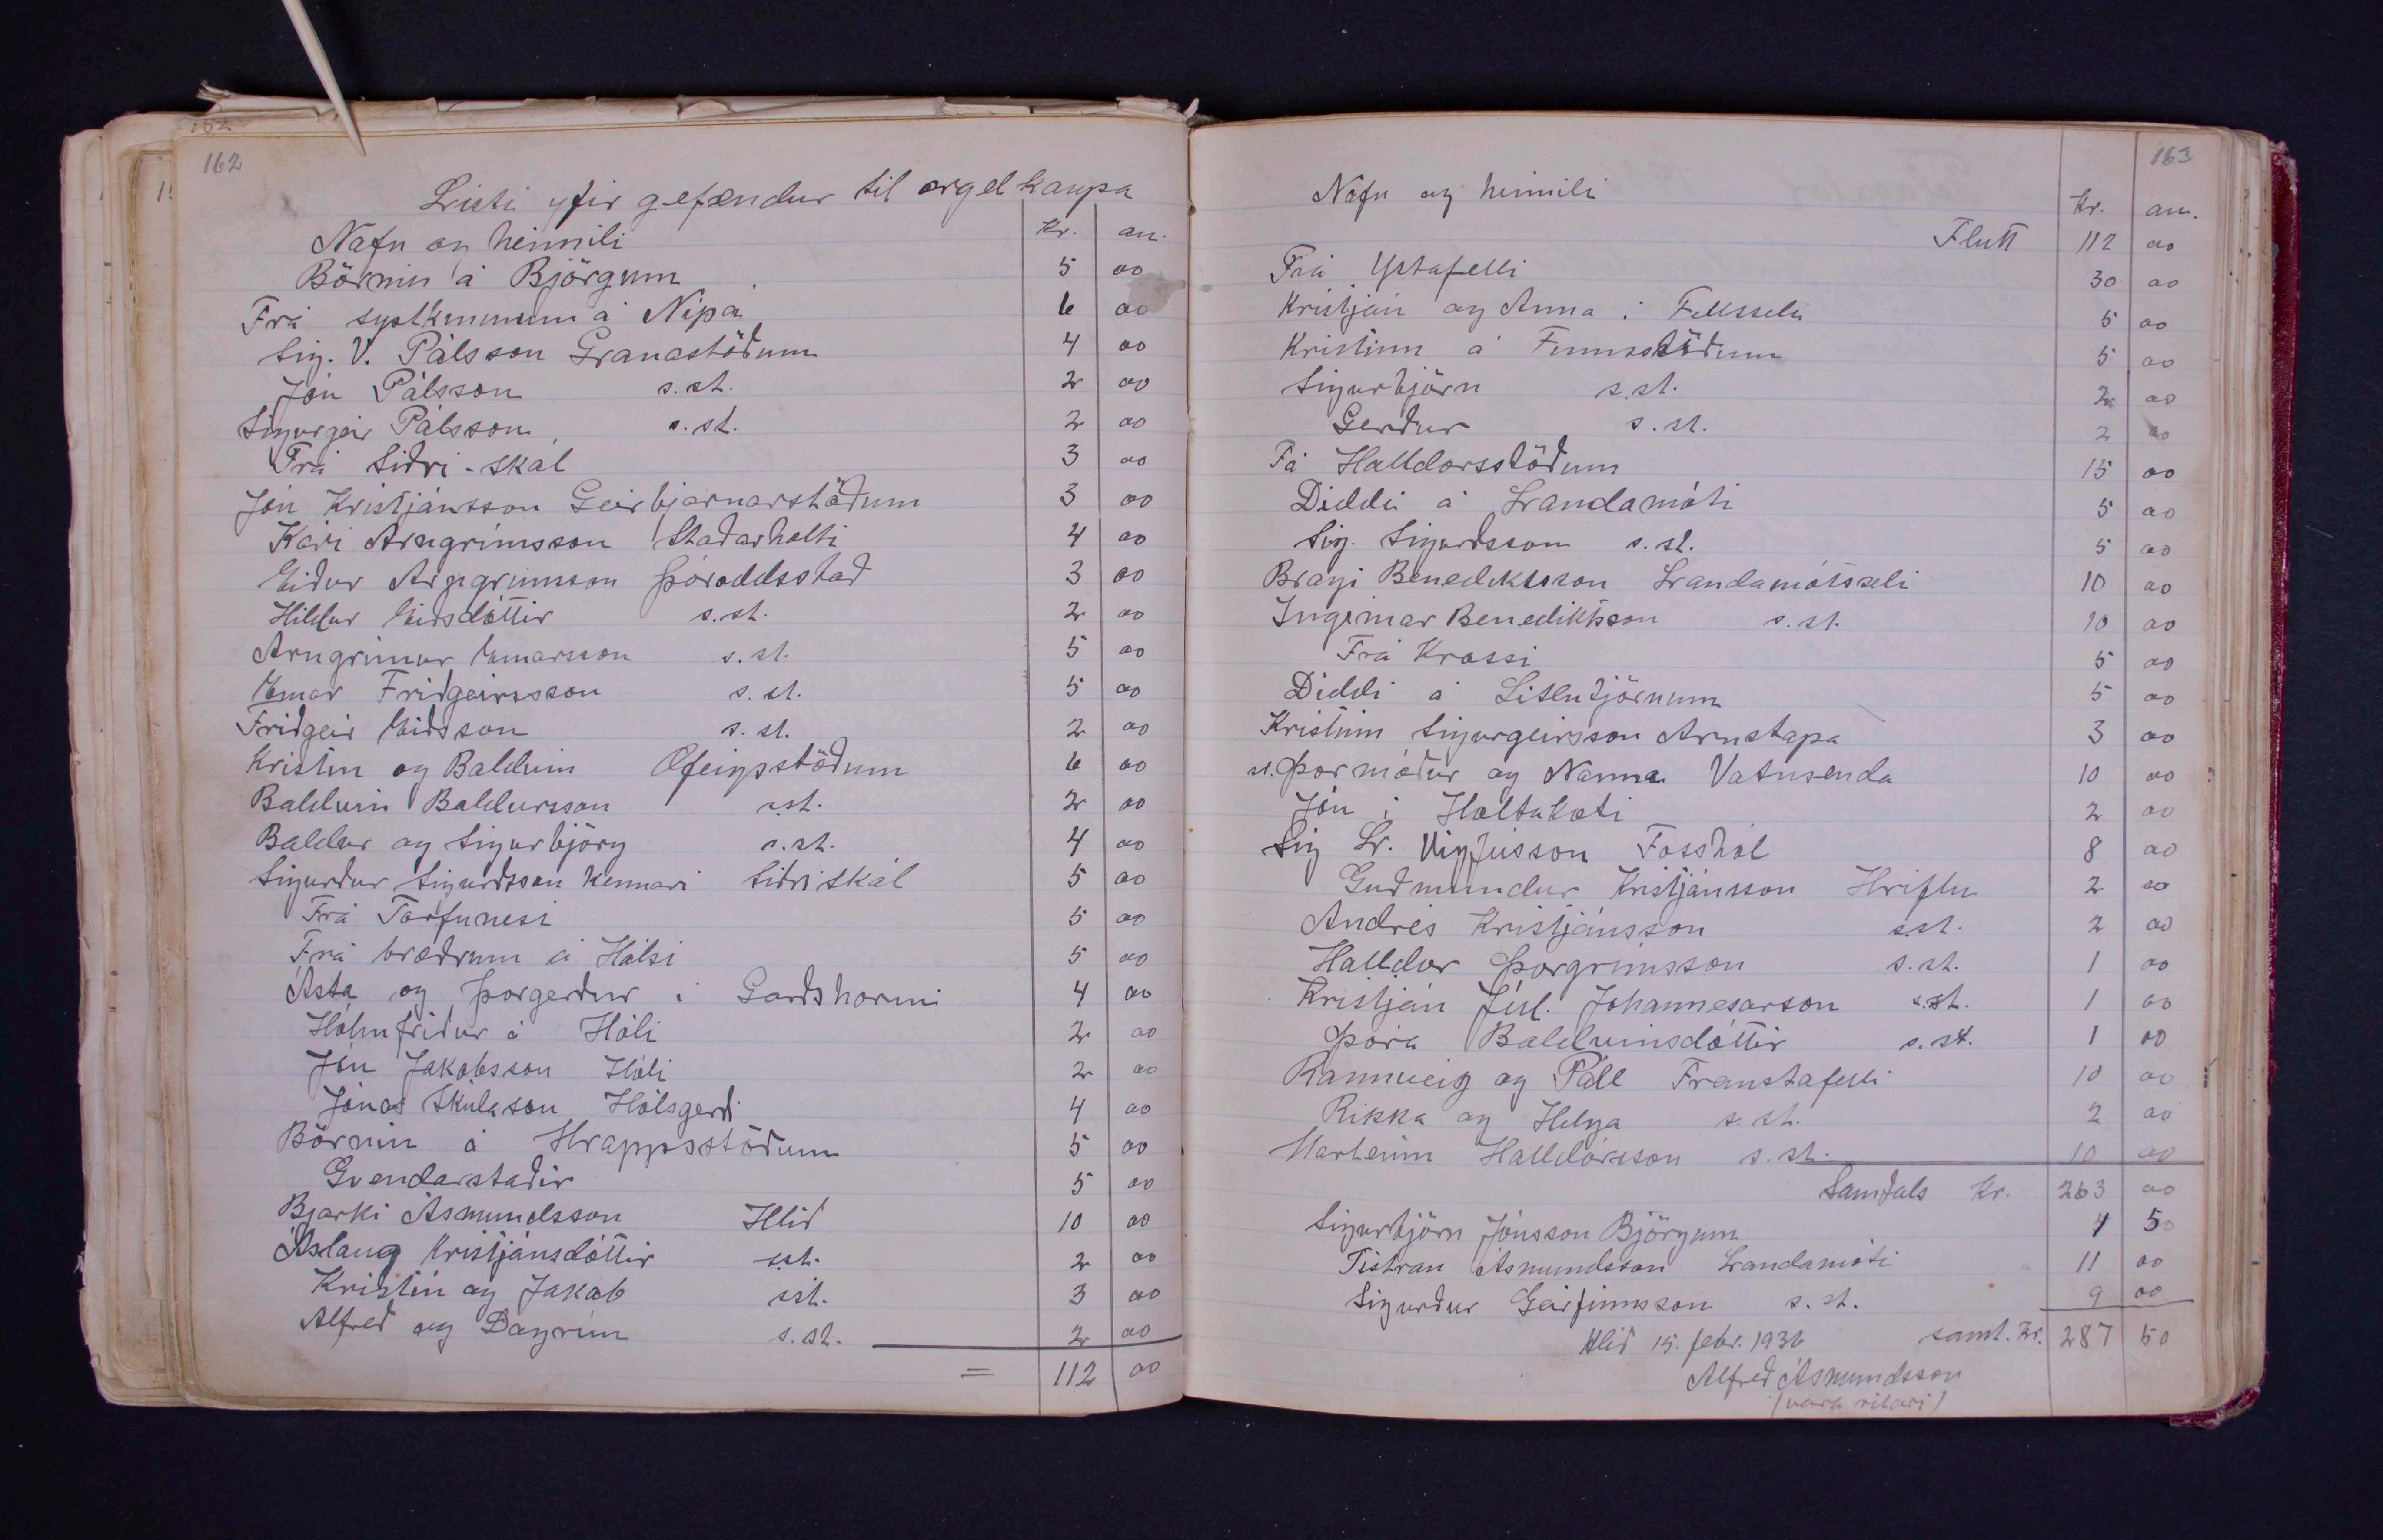 162
Listi yfir gefendur til orgel kaupa
Nafn og heimili Kr. au.
Börnin á Björgum 5 00
Frá systkinunum á Nípá 6 00
Sig. V. Pálsson Granastöðum 4 00
Jón Pálsson s.st. 2 00
Sigurgeir Pálsson s.st. 2 00
Frá Siðri-Skál 3 00
Jón Kristjánsson Geirbjarnarstöðum 3 00
Kári Arngrímsson Staðarholti 4 00
Eiður Arngrímsson Þóroddsstað 3 00
Hildur Eiðsdóttir s.st. 2 00
Arngrímur Einarsson s.st. 5 00
Einar Friðgeirsson s.st. 5 00
Friðgeir Eiðsson s.st. 2 00
Kristín og Baldvin Ófeigsstöðum 6 00
Baldvin Baldursson s.st. 2 00
Baldur og Sigurbjörg s.st. 4 00
Sigurður Sigurðsson Kennari Siðri Skál 5 00
Frá Torfunesi 5 00
Frá bræðrum á Hálsi 5 00
Ásta og Þorgerður í Garðshorni 4 00
Hólmfríður á Hóli 2 00
Jón Jakobsson Hóli 2 00
Jónas Skúlason Hólsgerði 4 00
Börnin á Hrappsstöðum 5 00
Gvendarstaðir 5 00
Bjarki Ásmundsson Hlíð 10 00
Áslaug Kristjánsdóttir s.st. 2 00
Kristín og Jakob s.st. 3 00
Alfreð og Dagrún s.st. 2 00
= 112 00
163
Nafn og heimili Kr. au.
Flutt 112 00
Frá Ystafelli 30 00
Kristján og Anna í Fellsseli 5 00
Kristinn á Finnsstöðum 5 00
Sigurbjörn s.st. 2 00
Gerður s.st. 2 00
Fá Halldórsstöðum 15 00
Diddi á Landamóti 5 00
Sig. Sigurðsson s.st. 5 00
Bragi Benediktsson Landamótsseli 10 00
Ingimar Benediktsson s.st. 10 00
Frá Krossi 5 00
Diddi á Litlutjörnum 5 00
Kristinn Sigurgeirsson Arnstapa 3 00
Þormóður og Nanna Vatnsenda 10 00
Jón í Holtakoti 2 00
Sig Lr. Vigfússon Fosshól 8 00
Guðmundur Kristjánsson Hriflu 2 00
Andrés Kristjánsson s.st. 2 00
Halldór Þorgrímsson s.st. 1 00
Kristján Júl. Jóhannesarson s.st. 1 00
Þóra Baldvinsdóttir s.st. 1 00
Rannveig og Páll Fremstafelli 10 00
Rikka og Helga s.st. 2 00
Marteinn Halldórsson s.st. 10 00
Samtals Kr. 263 00
Sigurbjörn Jónsson Björgum 4 50
Tistran Ásmundsson Landamóti 11 00
Sigurður Geirfinnsson s.st. 9 00
Hlíð 15. febr. 1936 samt. Kr. 287 50
Alfreð Ásmundsson
(vara ritari)